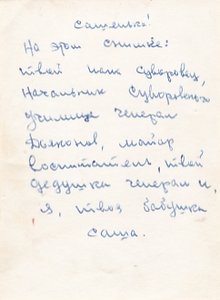 Сашенька!
На этом снимке:
твой папа Суворовец,
Начальник Суворовского
училища генерал
майор
воспитатель, твой
дедушка генерал и,
я, твоя бабушка
Саша.